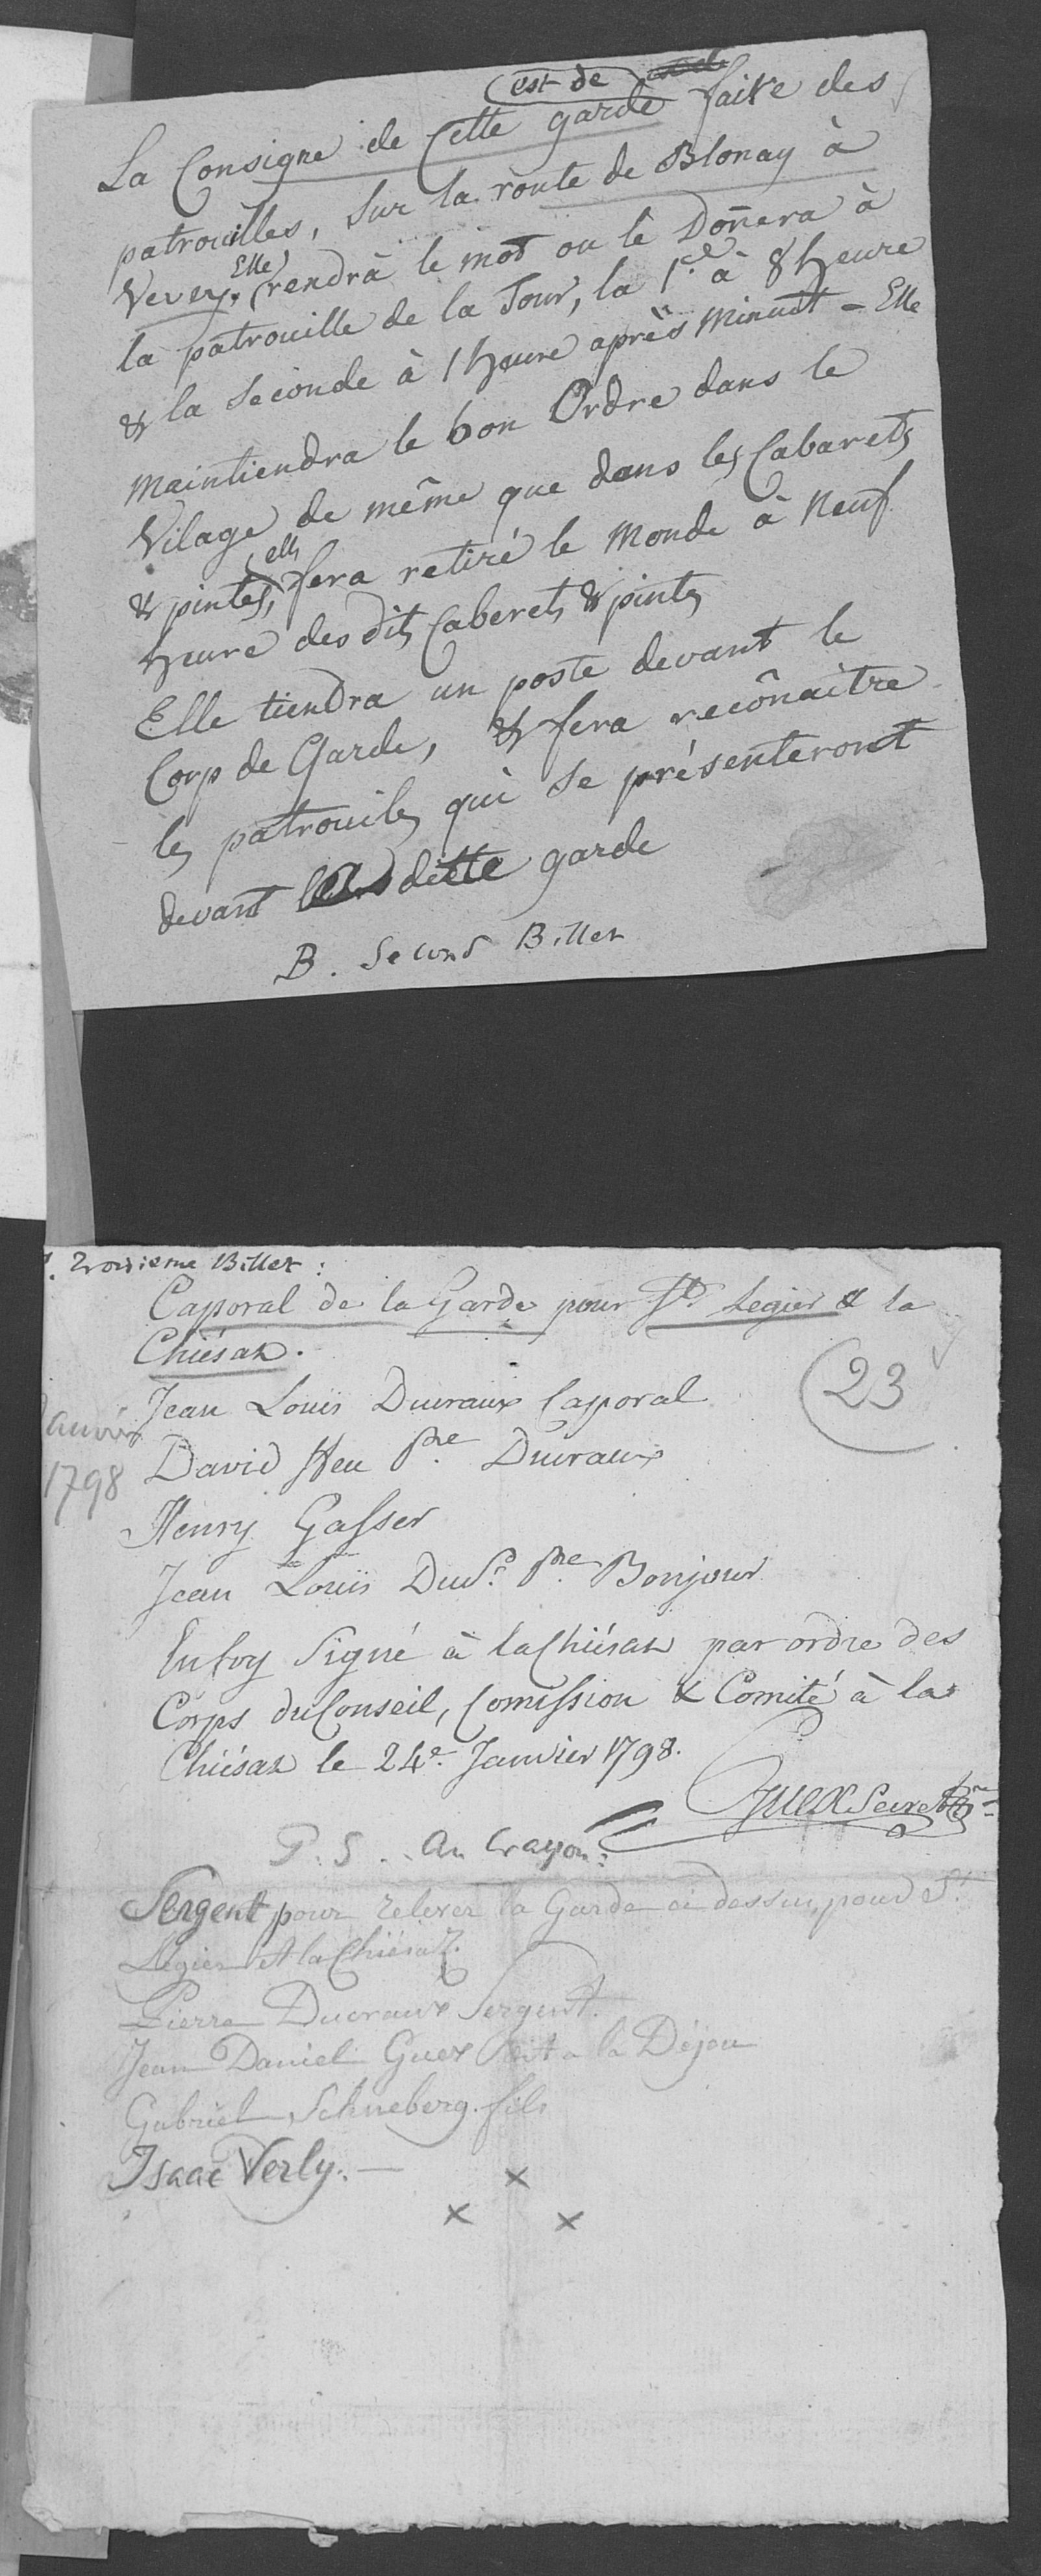 est de
La Consigne de Cette garde faire des
patrouilles, Sur la route de Blonay à
Vevey. Elle rendra le mot ou le Doñera à
la patrouille de la Tour, la 1.e à 8 heure
& la Seconde à 1 heure après Minuit - Elle
Maintiendra le bon Ordre dans le
Vilage de même que dans les Cabarets
& pintes, elle fera retiré le Monde à Neuf
heure des dits Caberets & pintes
Elle tiendra un poste devant le
Corp de Garde, & fera recônaitre
les patrouiles qui se présenteront
devant la ditte garde
B. Second Billet
Troisieme Billet :
Caporal de la Garde pour St Legier & la
Chiésaz.
23
Jean Louïs Ducraux Caporal
Janvier
1798
David ffeu Pre Ducraux
Henry Gasser
Jean Louïs Duc. Pre Bonjour
En foy Signé à la Chiésaz par ordre des
Corps du Conseil, Comission & Comité à la
Chiésaz le 24e Janvier 1798.
Guex Secret.re
P.S. au Crayon :
Sergent pour relever la Garde ci dessu, pour St
Légier et la Chiésaz.
Pierre Ducraux Sergent.
Jean Daniel Guex dit a la Déjou
Gabriel Schneberg fils
Isaac Verly. —